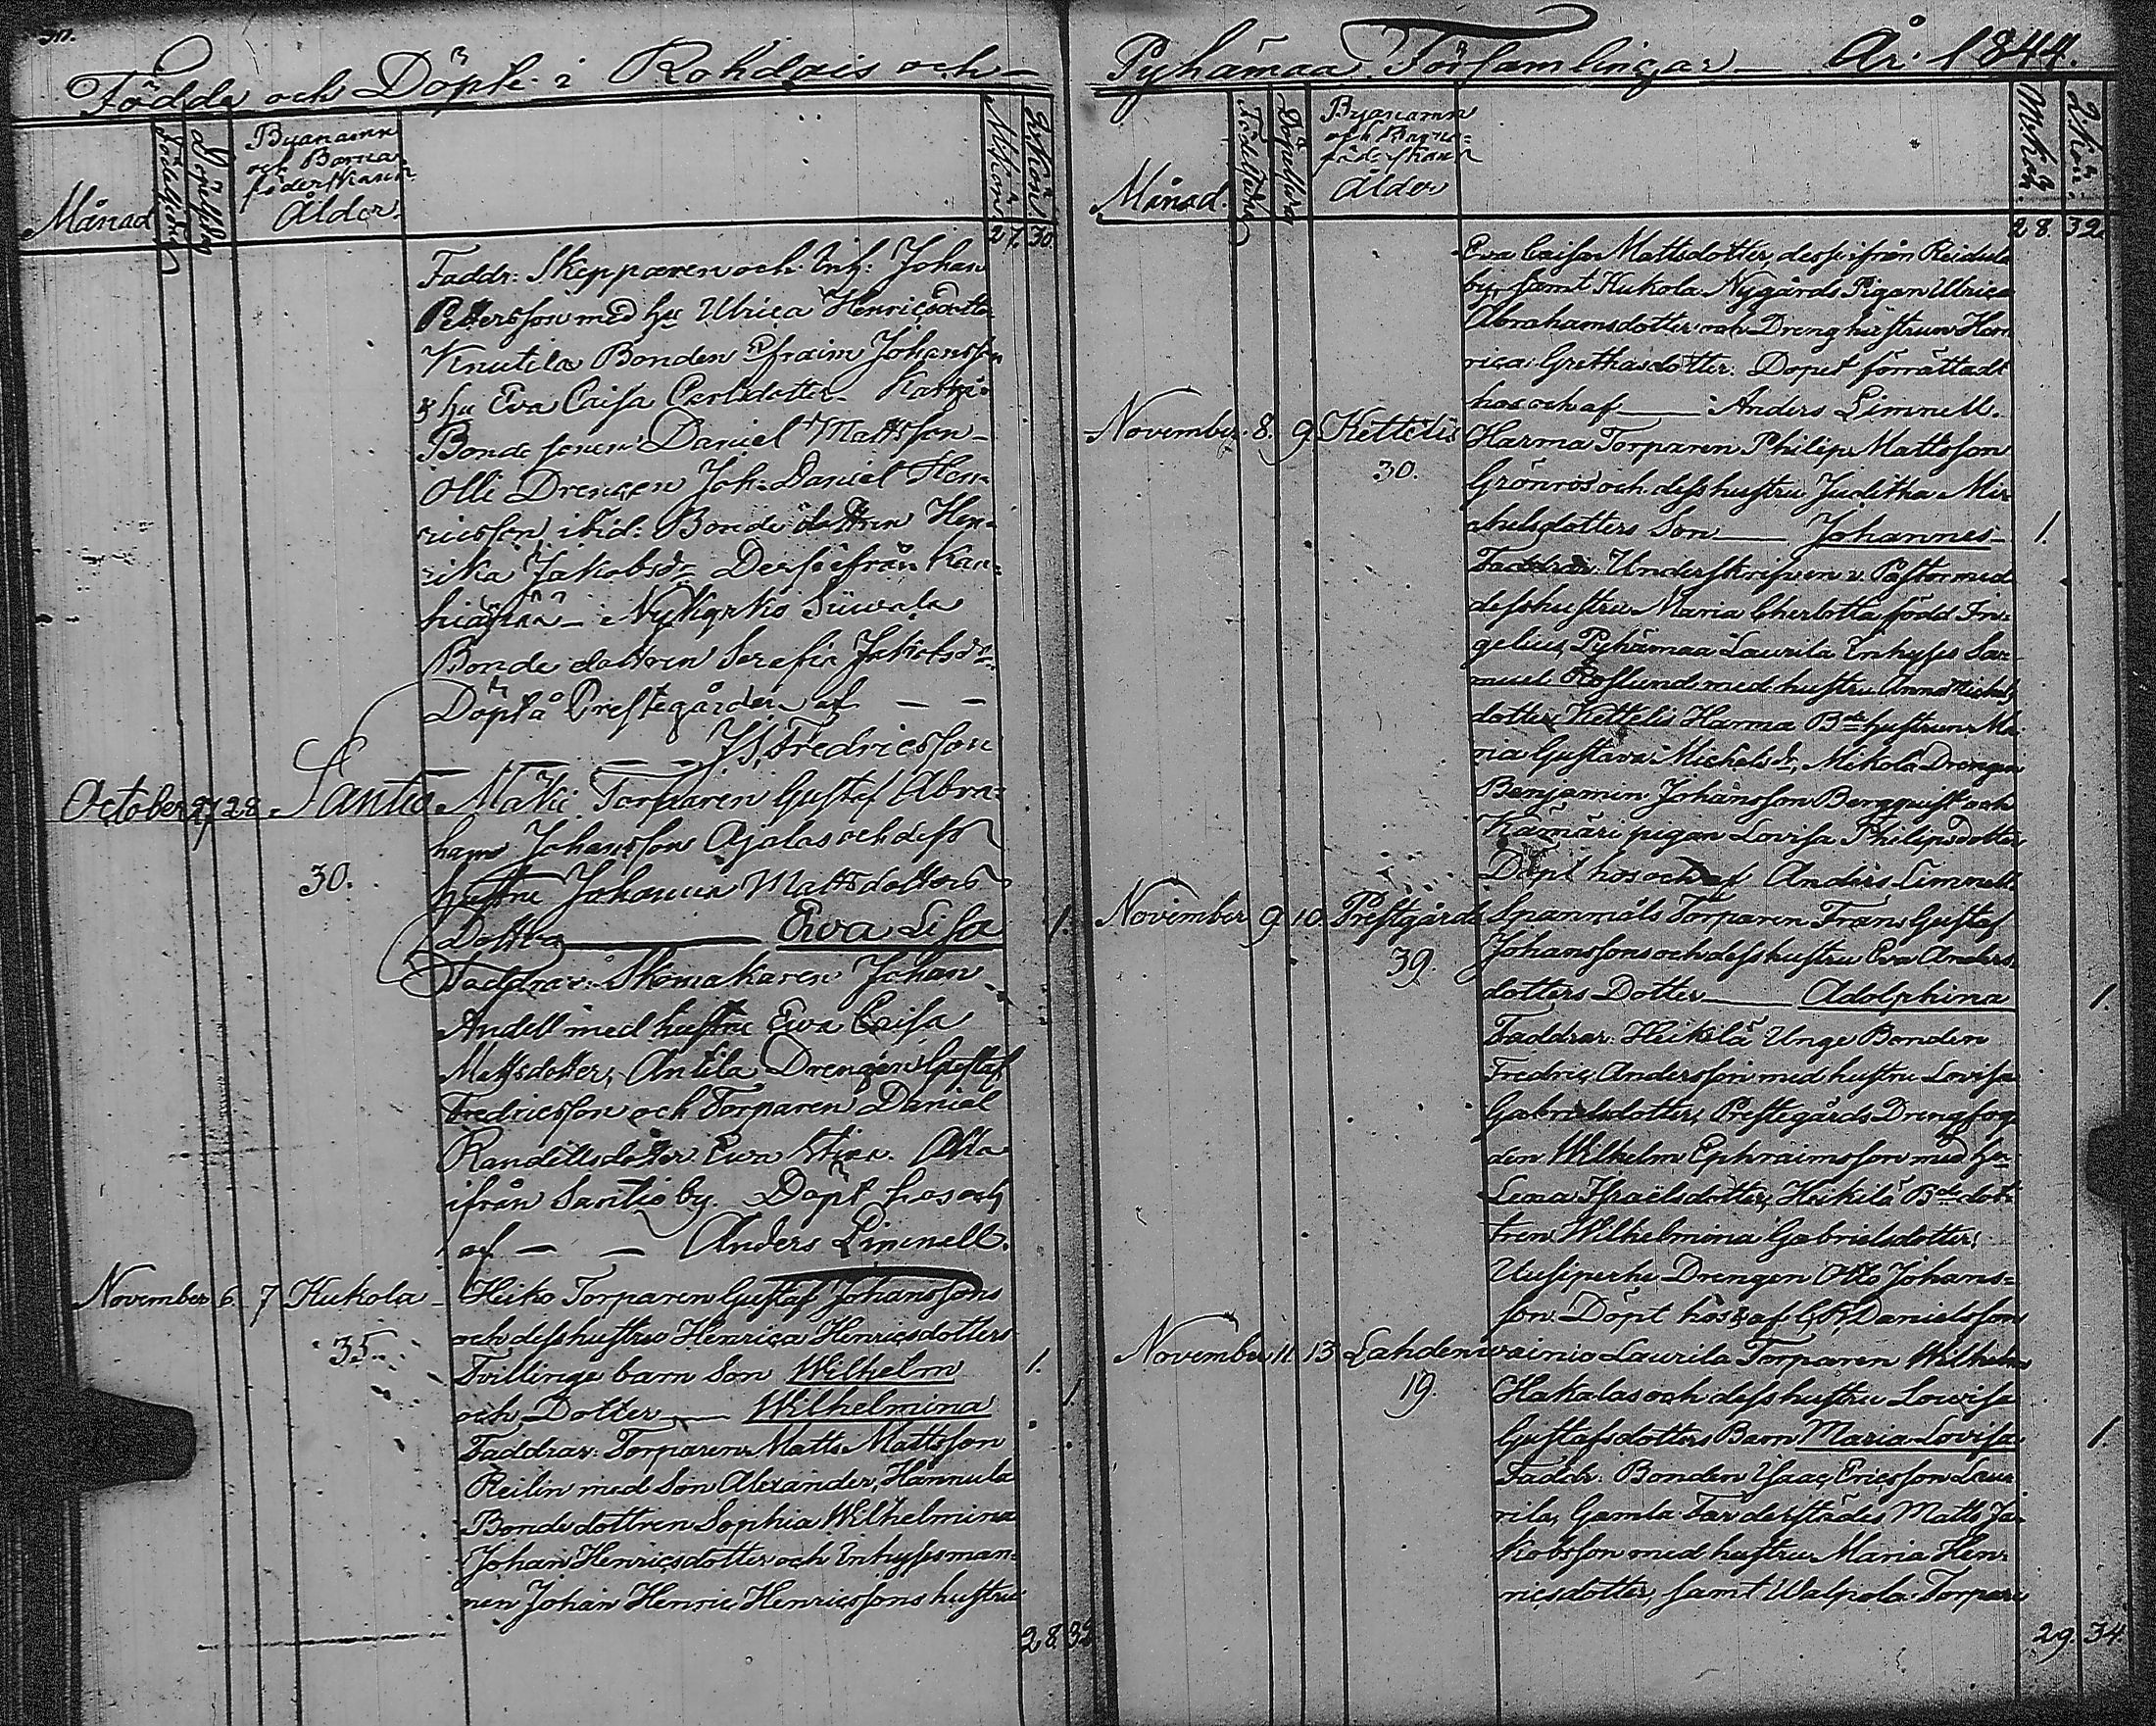 Födde och Döpte i Rohdais och
Månad
Födelsedag
Döpelsedag
Byanamn
och Barna
föderskans
Ålder.
M.Kön
Q.Kön
27. 30.
Faddr: Skepparen och Inh: Johan
Pettersson med hu Ulrica Henricsdotter
Knutila Bonden Efraim Johansson
& hu Eva Caisa Carlsdotter
Bonde sonen Daniel Mattsson
Olli Drengen Joh: Daniel Hen-
ricsson, ibid. Bonde dottren Hen-
rika Jakobsdr Desse ifrån Kan-
Nykyrko
Bonde dottren Serafia Jakobsdr
Döpt å Prestegården af — —
— — — J. Fredricsson
October 27 28 Santio Mäki Torparen Gustaf Abra-
ham Johansson Ajalas och dess
30. hustru Johanna Mattsdotters
Dotter — Eva Lisa 1.
Faddrar: Skomakaren Johan
Andell med hustru Eva Caisa
Mattsdotter, Antila Drengen Gustaf
Fredricsson och Torparen Daniel
Randellsdotter Ewa Stina. Alla
ifrån Santio by. Döpt hos och
af — — Anders Limnell.
November 6. 7 Kukola Heiko Torparen Gustaf Johanssons
35. och dess hustru Henrica Henricsdotters
Tvillinge barn Son Wilhelm 1.
och Dotter — Wilhelmina 1
Faddrar: Torparen Matts Mattsson
Reilin med Son Alexander, Hannula
Bonde dottren Sophia Wilhelmina
Johan Henricsdotter och Inhyses man-
nen Johan Henric Henricssons hustru
28. 32
Pyhämaa Församlingar År 1844.
Månad.
Födelsedag
Döpelsedag
Byanamn
och Barna-
föderskans
Ålder
M.Kön
Q.Kön.
28. 32.
Eva Caisa Mattsdotter, desse ifrån Reidula
by, samt Kukola Nygårds Pigan Ulrica
Abrahamsdotter och Dreng hustrun Hen
rica Grethasdotter. Dopet förrättadt
hos och af — Anders Limnell.
November 8. 9. Kettelis Harma Torparen Philip Mattsson
30. Grönros och dess hustru Juditha Mic
chelsdotters Son — Johannes 1.
Faddrar: Underskrifven v. Pastor med
dess hustru Maria Charlotta född In-
gelius, Pyhämaa Laurila Inhyses Sa-
muel Roslund med hustru Anna Michels
dotter, Kettelis Harma Bde hustrun Ma
ria Gustava Michelsdr, Mikola Drengen
Benjamin Johansson Bergqvist och
Kamari pigan Lovisa Philipsdotter
Döpt hos och af Anders Limnell
November 9. 10. Prestgårds Spanmåls Torparen Frans Gustaf
39. Johanssons och dess hustru Eva Anders-
dotters Dotter — Adolphina 1.
Faddrar: Heikilä Unge Bonden
Fredric Andersson med hustru Lovisa
Gabrielsdotter, Prestegårds Drengfog
den Wilhelm Ephraimsson med hu
Lena Israelsdotter, Heikilä Bde dot-
tren Wilhelmina Gabrielsdotter,
Uusiperhe Drengen Otto Johans-
son. Döpt hos & af Danielsson
November 11. 13 Lahdenwainio Laurila Torparen Wilhelm
19. Hakalas och dess hustru Lovisa
Gustafsdotters Barn Maria Lovisa 1.
Faddr: Bonden Isaac Ericsson Lau-
rila, Gamla Far derstädes Matts Ja-
kobsson med hustru Maria Hen-
ricsdotter, samt Walpola Torpare
29. 34.